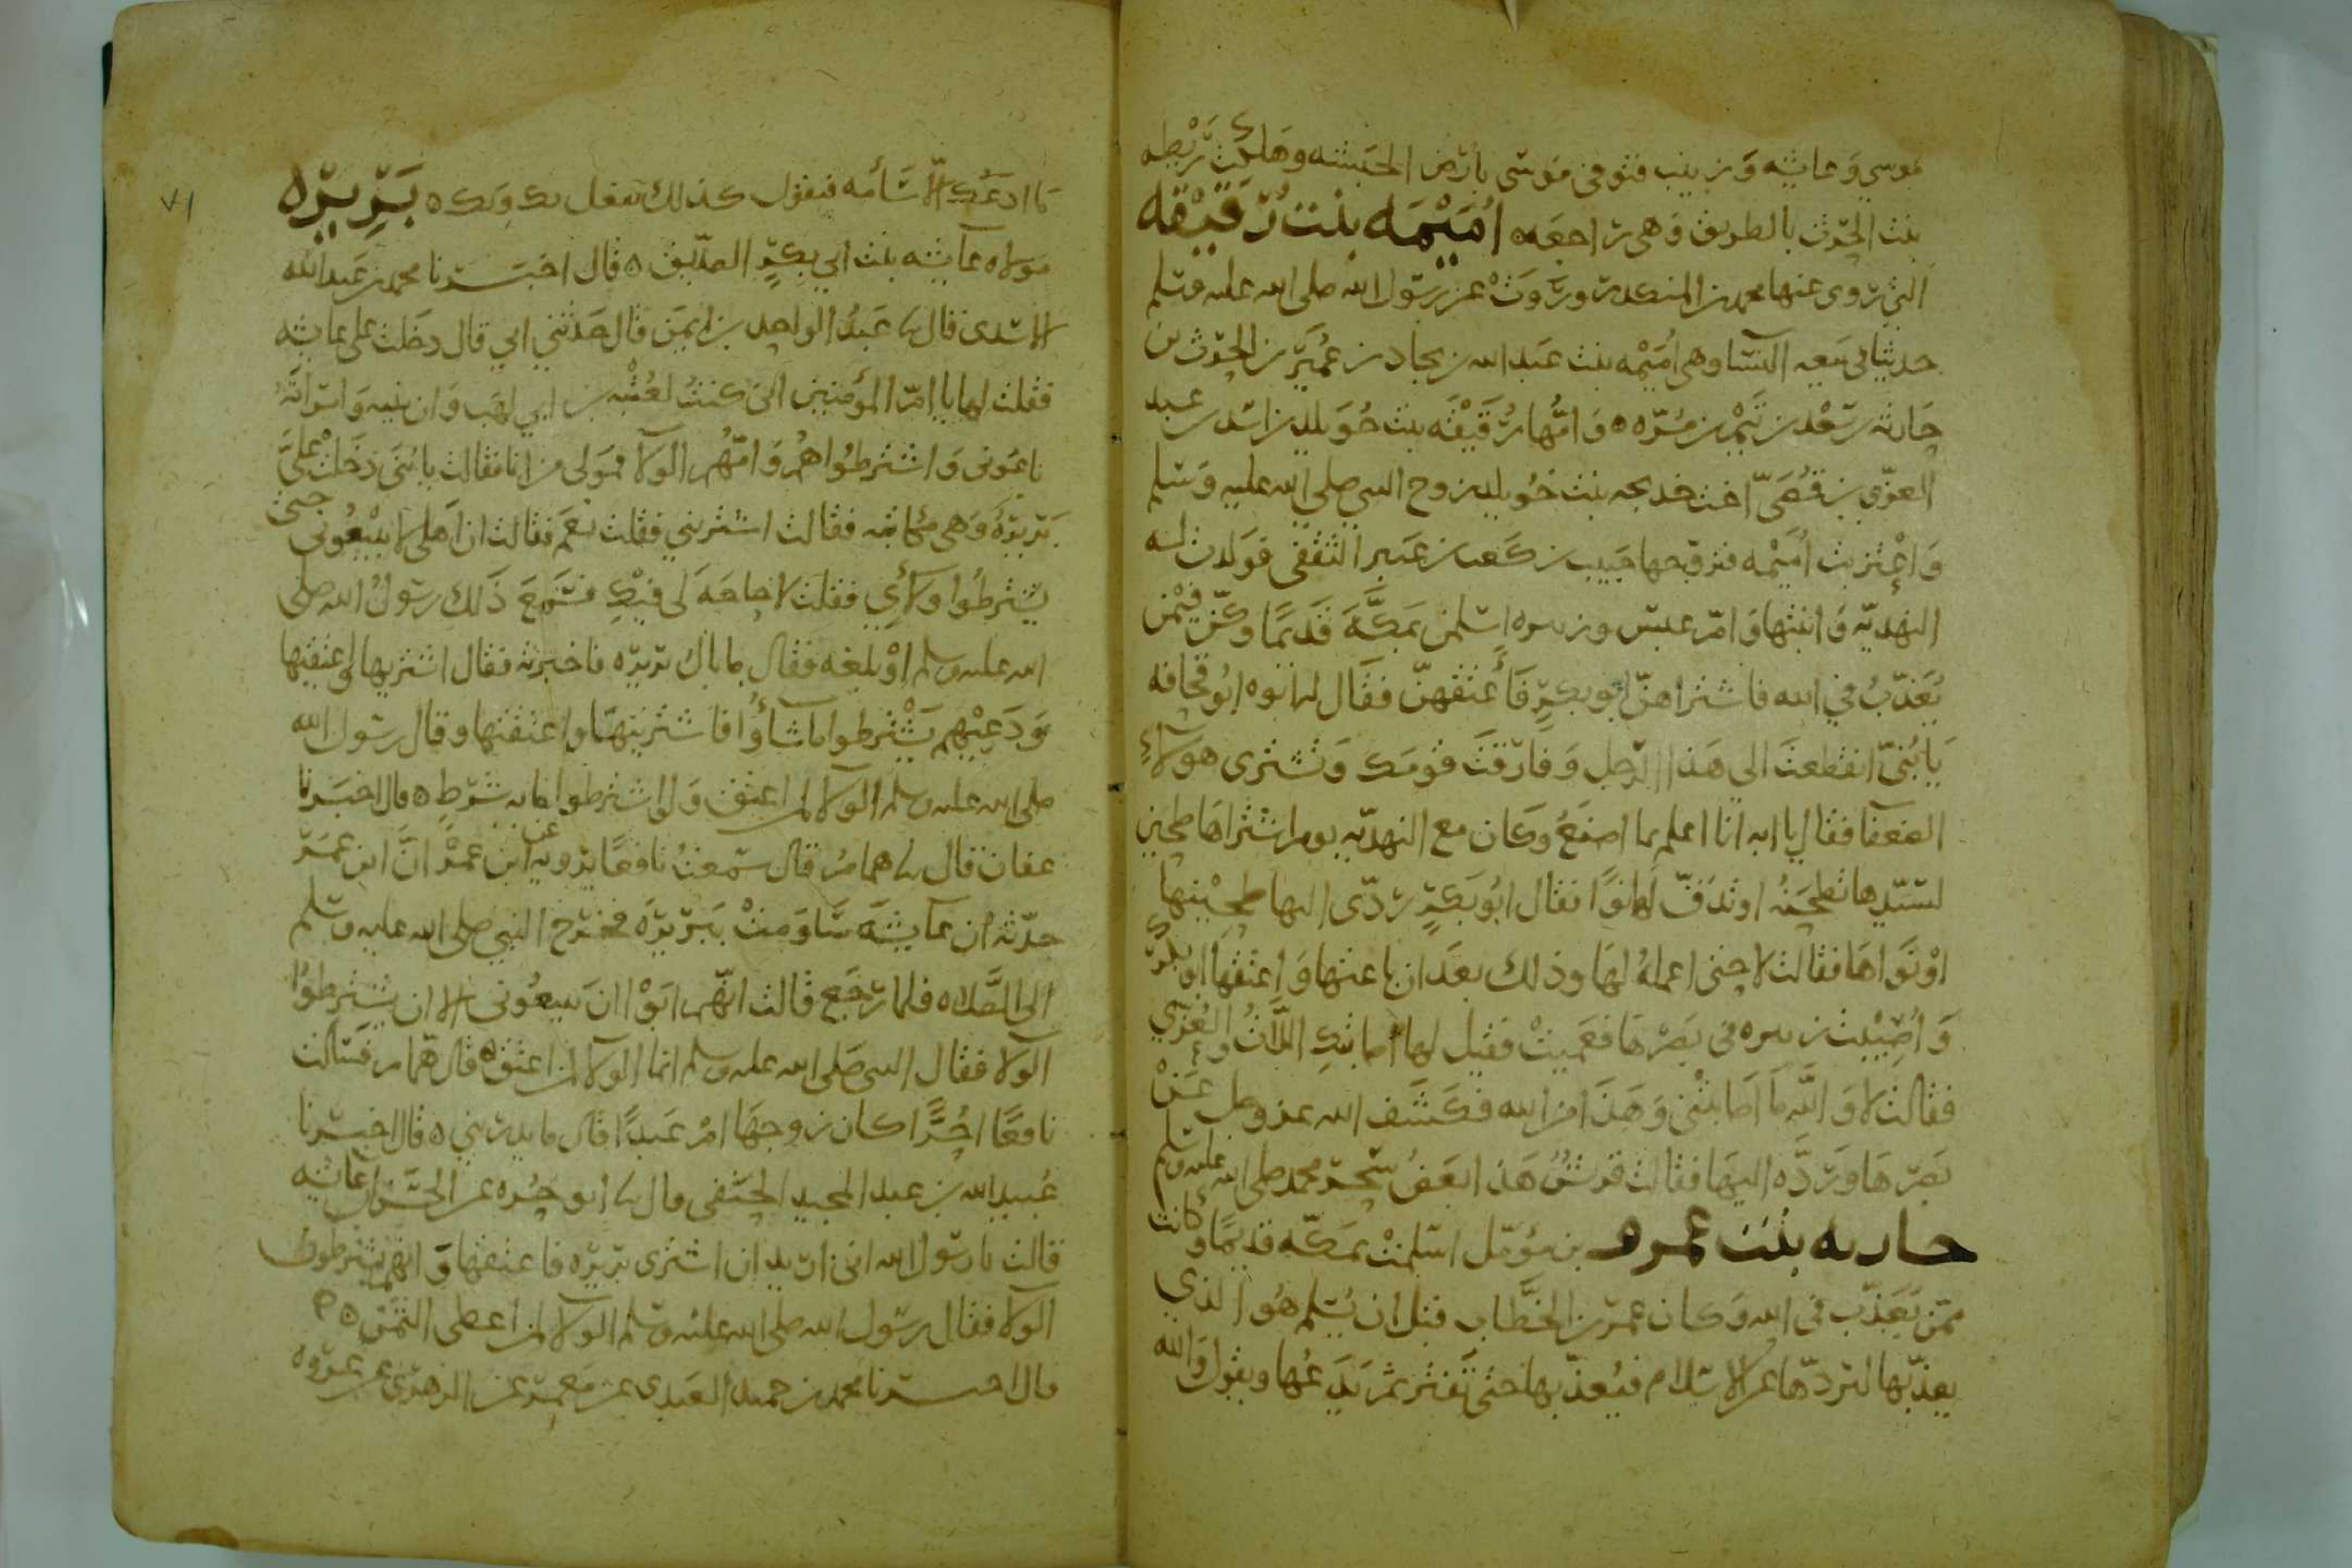 موسي وعايشه وزينب فتوفي موسى بارض الحبشه وهلكت ريطه
بنت الحرث بالطريق وهي راجعه ه اُمَيْمَه بنت رُقَيْقه
التي روى عنها محمد بن المنكدر وروت عن رسول الله صلى الله عليه وسلم
حديثا في بيعه النسا وهي أميمه بنت عبد الله بن بجاد بن عمير بن الحرث بن
حارثه بن سعد بن تيم بن مره ه وأمها رقيقه بنت خويلد بن اسد بن عبد
العزى بن قصي اخت خديجه بنت خويلد زوج النبي صلى الله عليه وسلم
واغتربت أميمه فتزوجها حبيب بن كعب بن عتير الثقفي فولدت له
النهديه وابنتها وام عبيس وزنيره اسلمن بمكه قديما وكن فيمن
يعذب في الله فاشتراهن ابو بكر فأعتقهن فقال له ابوه ابو قحافه
يا بني انقطعت الى هذا الرجل وفارقت قومك وتشتري هولاء
الضعفا فقال يا ابه انا اعلم بما اصنع وكان مع النهديه يوم اشتراها طحين
لسيدها تطحنه او تدق لها نوا فقال ابو بكر ردي اليها طحينها
او نواها فقالت لا حتى اعمله لها وذلك بعد ان باعتها واعتقها ابو بكر
وأصيبت زنيره في بصرها فعميت فقيل لها أصابتك اللات والعزي
فقالت لا والله ما اصابتني وهذا من الله فكشف الله عز وجل عن
بصرها ورده اليها فقالت قريش هذا بعض سحر محمد صلى الله عليه وسلم
جاريه بنت عمرو بن مؤمل اسلمت بمكه قديما وكانت
ممن يعذب في الله وكان عمر بن الخطاب قبل ان يسلم هو الذي
يعذبها لتردها عن الاسلام فيعذبها حتى تفتر ثم يدعها ويقول والله
ما ادعك الا سأمه فتقول كذلك يفعل بك ربك ه بَرِيرَه
مولاه عايشه بنت ابي بكر الصديق ه قال اخبرنا محمد بن عبد الله
الاسدي قال نا عبد الواحد بن ايمن قال حدثني ابي قال دخلت على عايشه
فقلت لها يا ام المؤمنين اني كنت لعتبه بن ابي لهب وان بنيه وامراته
باعوني واشترطوا هم وامهم الولا فمولى من انا فقالت يا بني دخلت علي
بريره وهي مكاتبه فقالت اشتريني فقلت نعم فقالت ان اهلي لا يبيعوني حتى
يشترطوا ولأي فقلت لا حاجه لي فيك فسمع ذلك رسول الله صلى
الله عليه وسلم او بلغه فقال ما بال بريره فاخبرته فقال اشتريها واعتقيها
ودعيهم يشترطوا ما شاؤا فاشتريتها واعتقتها وقال رسول الله
صلى الله عليه وسلم الولا لمن اعتق ولو اشترطوا مايه شرط ه قال اخبرنا
عفان قال نا همام قال سمعت نافعا يرويه عن ابن عمر ان ابن عمر
حدثه أن عايشه ساومت ببريره فخرج النبي صلى الله عليه وسلم
الى الصلاه فلما رجع قالت انهم ابوا ان يبيعوني الا ان يشترطوا
الولا فقال النبي صلى الله عليه وسلم انما الولا لمن اعتق ه قال همام فسالت
نافعا احرا كان زوجها ام عبدا قال ما يدريني ه قال اخبرنا
عبيد الله بن عبد المجيد الحنفي قال نا ابو حره عن الحسن ان عايشه
قالت يا رسول الله اني اريد ان اشتري بريره فاعتقها وانهم يشترطون
الولا فقال رسول الله صلى الله عليه وسلم الولا لمن اعطى الثمن ه
قال اخبرنا محمد بن حميد العبدي عن معمر عن الزهري عن عروه
٧١